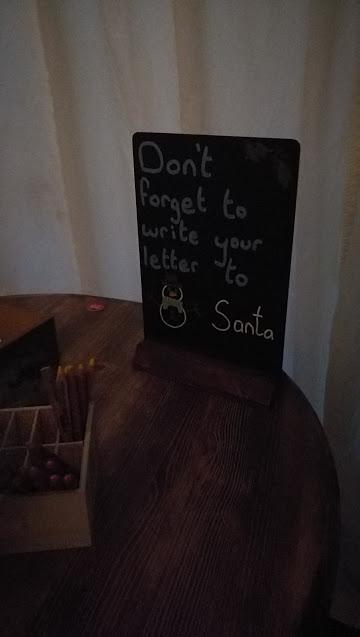 Don't
forget to
write your
letter to
Santa